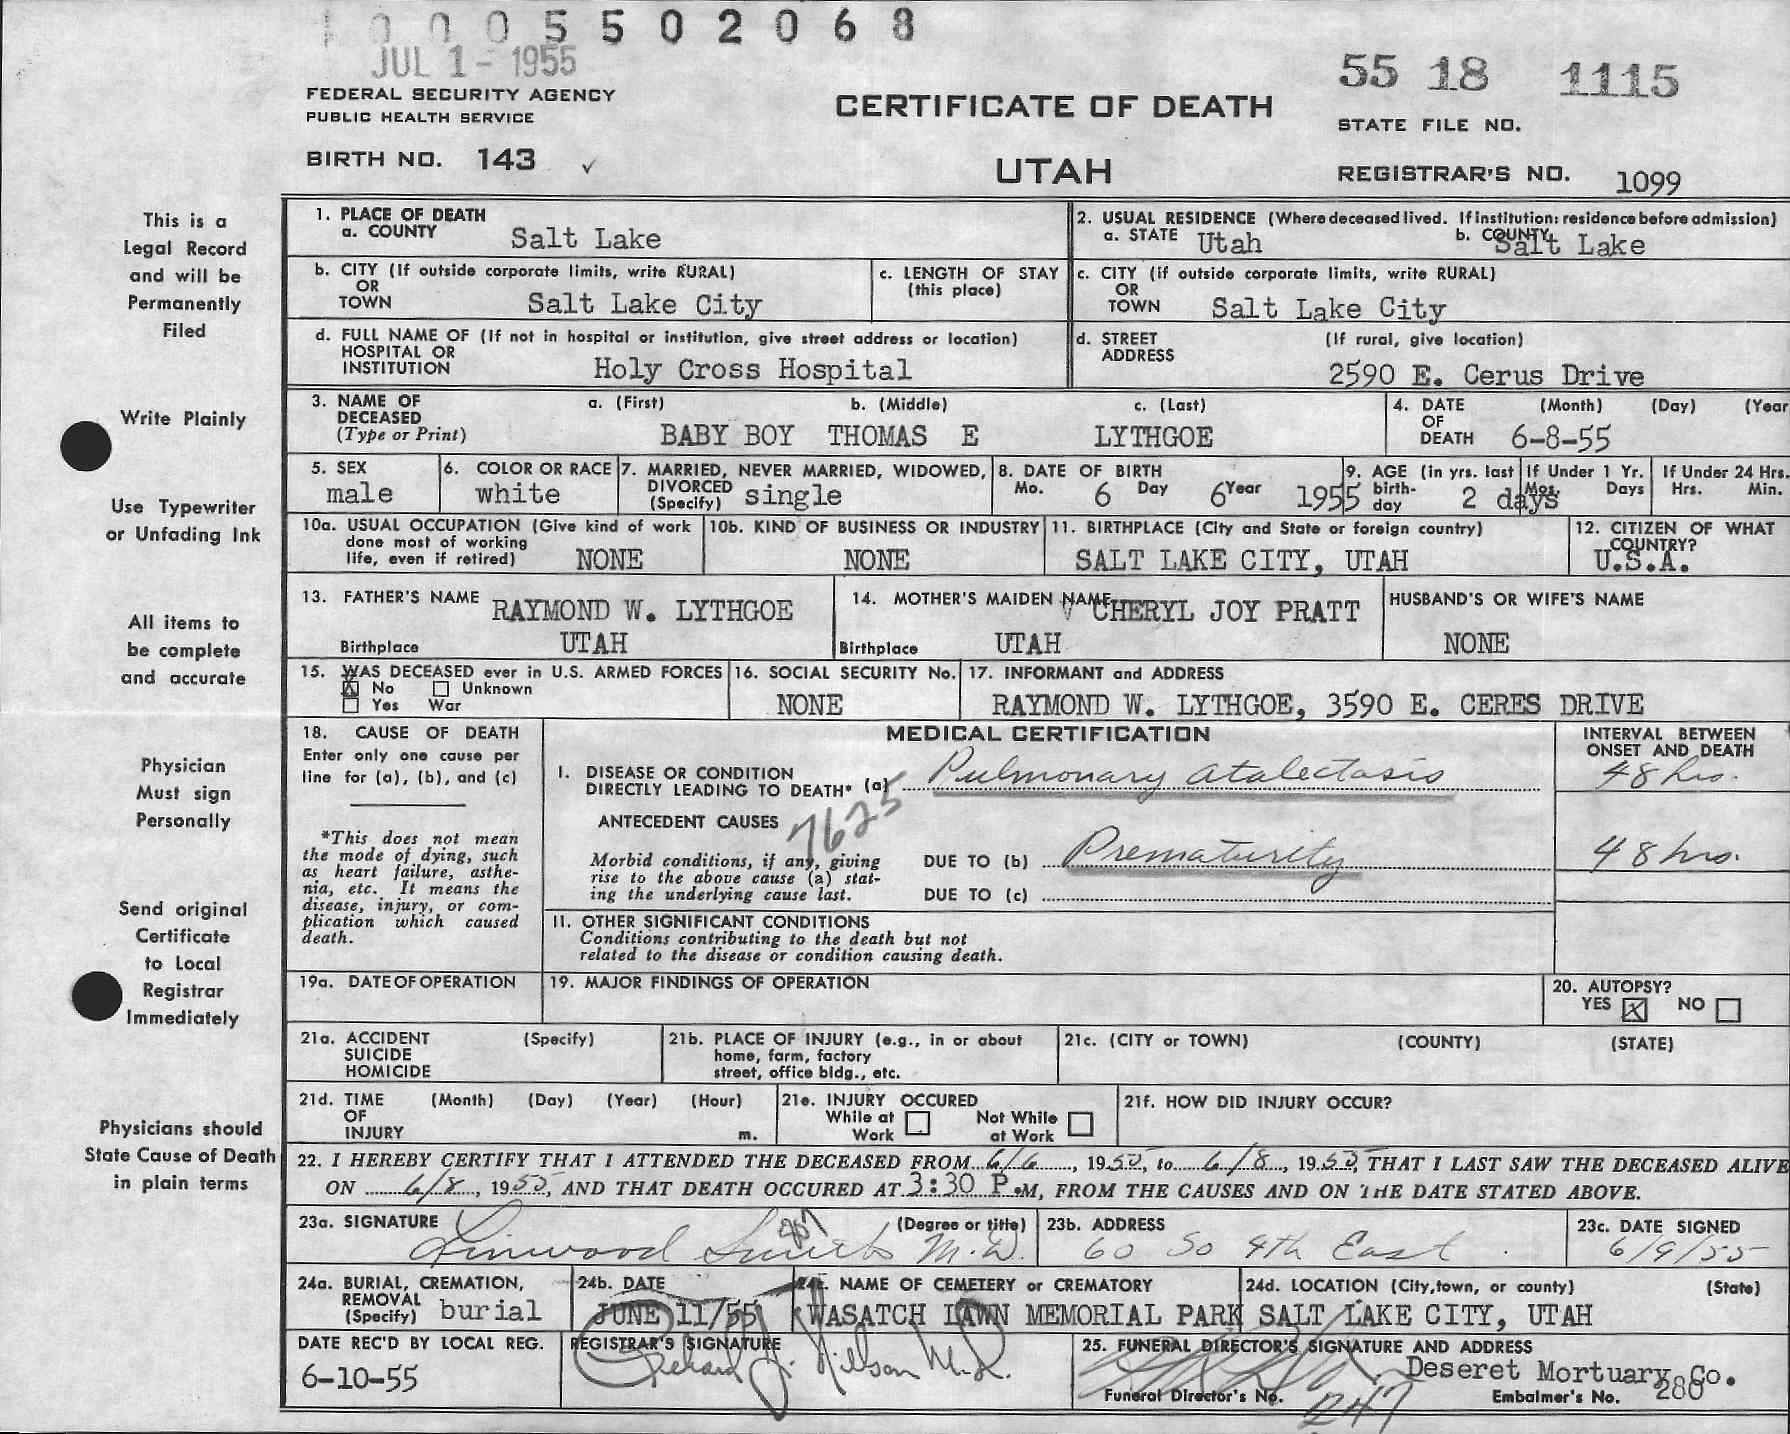 0005502068
JUL 1 - 1955
55 18 1115
FEDERAL SECURITY AGENCY
PUBLIC HEALTH SERVICE
CERTIFICATE OF DEATH
STATE FILE NO.
BIRTH NO. 143 ✓
UTAH
REGISTRAR'S NO. 1099
This is a
Legal Record
and will be
Permanently
Filed
Write Plainly
Use Typewriter
or Unfading Ink
All items to
be complete
and accurate
Physician
Must sign
Personally
Send original
Certificate
to Local
Registrar
Immediately
Physicians should
State Cause of Death
in plain terms
1. PLACE OF DEATH
a. COUNTY Salt Lake
2. USUAL RESIDENCE (Where deceased lived. If institution: residence before admission)
a. STATE Utah b. COUNTY Salt Lake
b. CITY (If outside corporate limits, write RURAL)
OR
TOWN Salt Lake City
c. LENGTH OF STAY
(this place)
c. CITY (if outside corporate limits, write RURAL)
OR
TOWN Salt Lake City
d. FULL NAME OF (If not in hospital or institution, give street address or location)
HOSPITAL OR
INSTITUTION Holy Cross Hospital
d. STREET (If rural, give location)
ADDRESS
2590 E. Cerus Drive
3. NAME OF a. (First) b. (Middle) c. (Last)
DECEASED
(Type or Print) BABY BOY THOMAS E LYTHGOE
4. DATE (Month) (Day) (Year
OF
DEATH 6-8-55
5. SEX
male
6. COLOR OR RACE
white
7. MARRIED, NEVER MARRIED, WIDOWED,
DIVORCED
(Specify) single
8. DATE OF BIRTH
Mo. 6 Day 6 Year 1955
9. AGE (in yrs. last
birth-
day 2 days
If Under 1 Yr.
Mos. Days
If Under 24 Hrs.
Hrs. Min.
10a. USUAL OCCUPATION (Give kind of work
done most of working
life, even if retired) NONE
10b. KIND OF BUSINESS OR INDUSTRY
NONE
11. BIRTHPLACE (City and State or foreign country)
SALT LAKE CITY, UTAH
12. CITIZEN OF WHAT
COUNTRY?
U.S.A.
13. FATHER'S NAME RAYMOND W. LYTHGOE
Birthplace UTAH
14. MOTHER'S MAIDEN NAME CHERYL JOY PRATT
Birthplace UTAH
HUSBAND'S OR WIFE'S NAME
NONE
15. WAS DECEASED ever in U.S. ARMED FORCES
X No Unknown
Yes War
16. SOCIAL SECURITY No.
NONE
17. INFORMANT and ADDRESS
RAYMOND W. LYTHGOE, 3590 E. CERES DRIVE
18. CAUSE OF DEATH
Enter only one cause per
line for (a), (b), and (c)
*This does not mean
the mode of dying, such
as heart failure, asthe-
nia, etc. It means the
disease, injury, or com-
plication which caused
death.
MEDICAL CERTIFICATION
INTERVAL BETWEEN
ONSET AND DEATH
I. DISEASE OR CONDITION
DIRECTLY LEADING TO DEATH* (a) Pulmonary atalectasis 48 hrs.
7625
ANTECEDENT CAUSES
Morbid conditions, if any, giving
rise to the above cause (a) stat-
ing the underlying cause last.
DUE TO (b) Prematurity 48 hrs.
DUE TO (c)
II. OTHER SIGNIFICANT CONDITIONS
Conditions contributing to the death but not
related to the disease or condition causing death.
19a. DATE OF OPERATION
19. MAJOR FINDINGS OF OPERATION
20. AUTOPSY?
YES X NO
21a. ACCIDENT (Specify)
SUICIDE
HOMICIDE
21b. PLACE OF INJURY (e.g., in or about
home, farm, factory
street, office bldg., etc.
21c. (CITY or TOWN) (COUNTY) (STATE)
21d. TIME (Month) (Day) (Year) (Hour)
OF
INJURY m.
21e. INJURY OCCURED
While at Work Not While at Work
21f. HOW DID INJURY OCCUR?
22. I HEREBY CERTIFY THAT I ATTENDED THE DECEASED FROM 6/6, 1955, to 6/8, 1955, THAT I LAST SAW THE DECEASED ALIVE
ON 6/8, 1955, AND THAT DEATH OCCURED AT 3:30 P.M, FROM THE CAUSES AND ON THE DATE STATED ABOVE.
23a. SIGNATURE (Degree or title)
Linwood Smith M.D.
23b. ADDRESS
60 So 4th East
23c. DATE SIGNED
6/9/55
24a. BURIAL, CREMATION,
REMOVAL
(Specify) burial
24b. DATE
JUNE 11/55
24c. NAME OF CEMETERY or CREMATORY
WASATCH LAWN MEMORIAL PARK
24d. LOCATION (City, town, or county) (State)
SALT LAKE CITY, UTAH
DATE REC'D BY LOCAL REG.
6-10-55
REGISTRAR'S SIGNATURE
25. FUNERAL DIRECTOR'S SIGNATURE AND ADDRESS
Deseret Mortuary Co.
Funeral Director's No. 247
Embalmer's No. 280